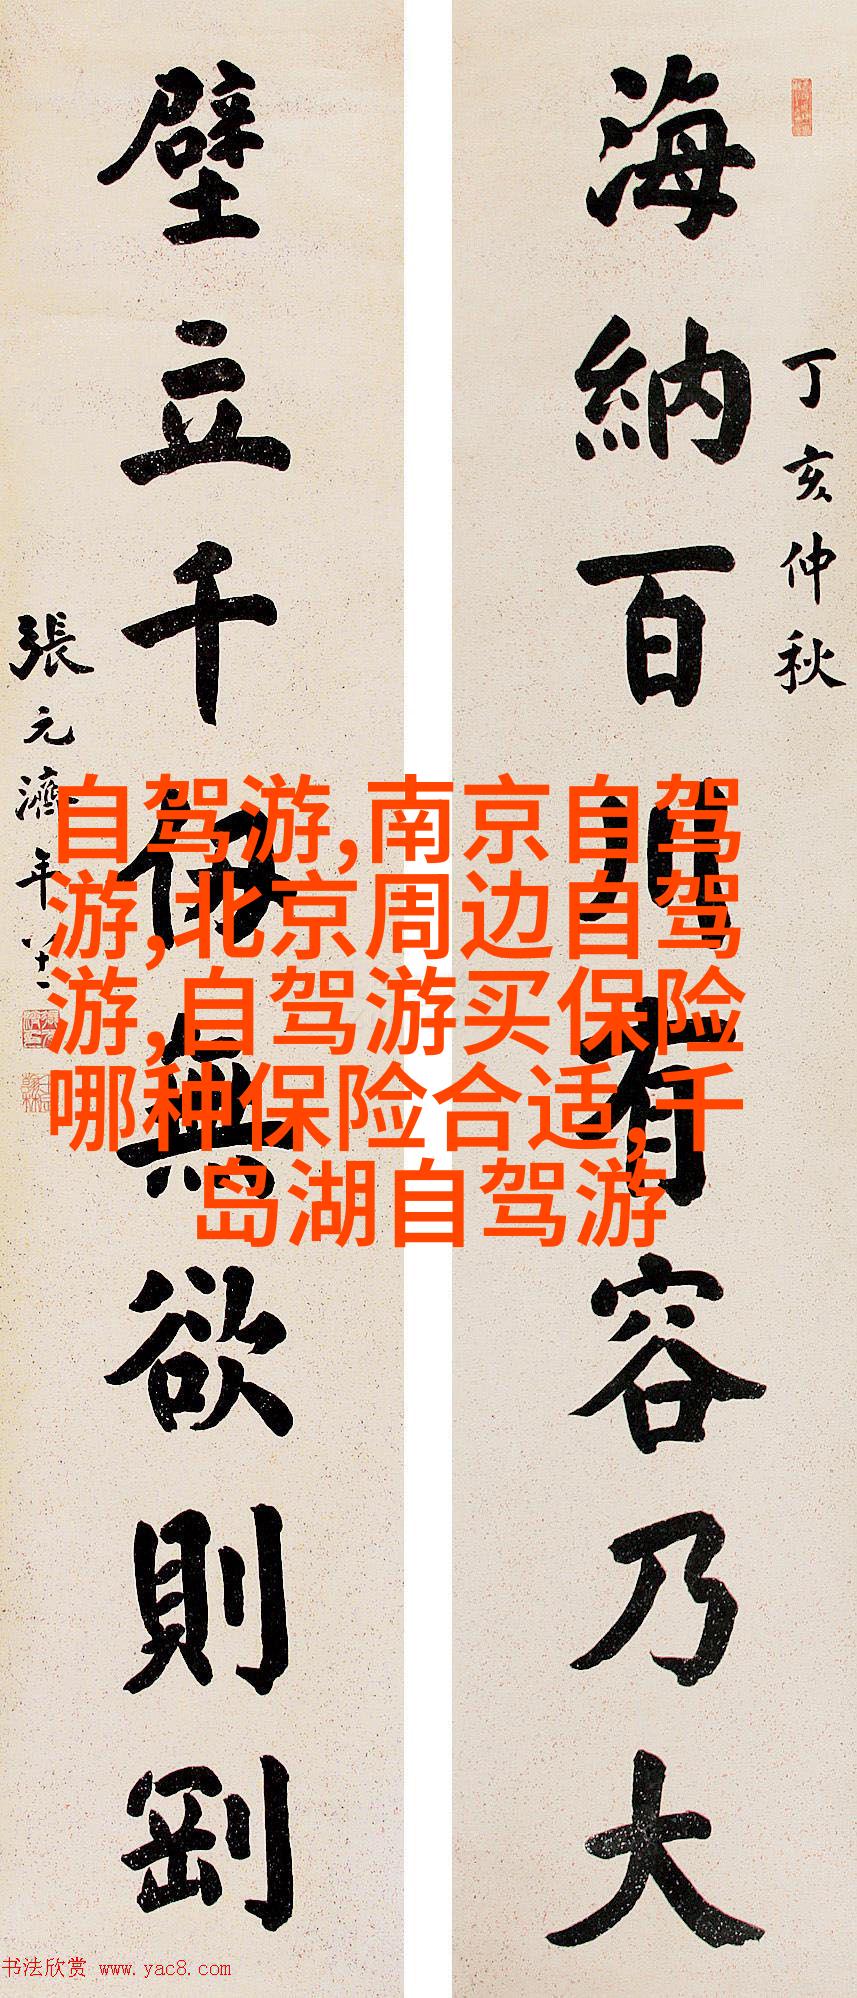 海納百川有容乃大
丁亥仲秋
壁立千仞無欲則剛
張元濟年八十一
自驾游,南京自驾
游,北京周边自驾
游,自驾游买保险
哪种保险合适,千
岛湖自驾游
书法欣赏 www.yac8.com